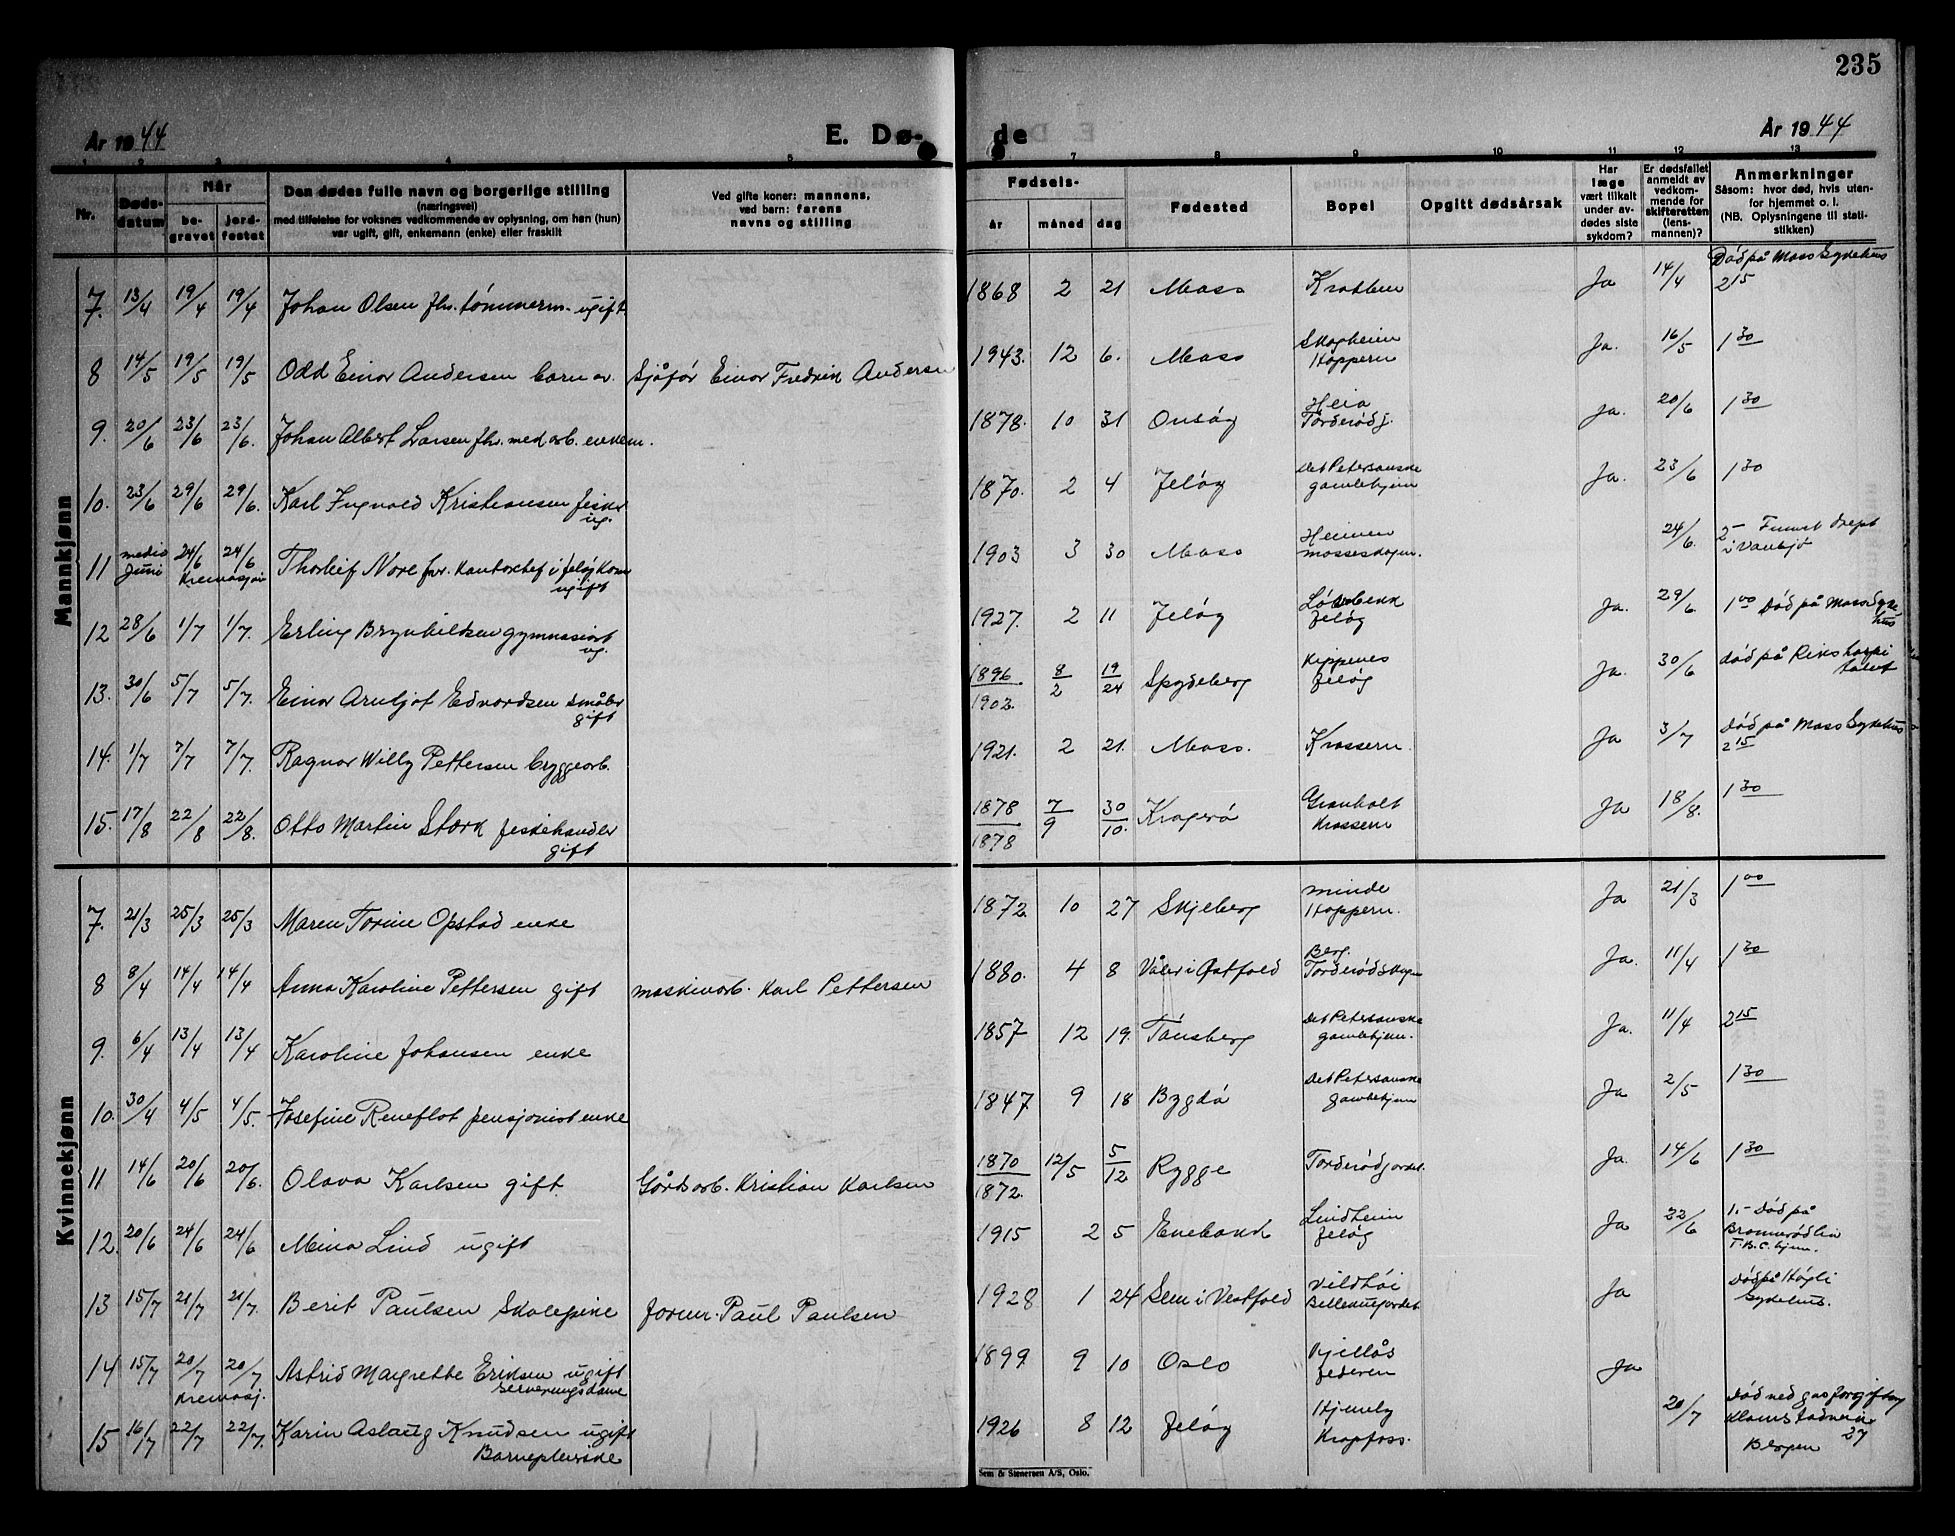 235
År 1944
E. Dø-
de
År 1944
1 2 3 4 5 7 8 9 10 11 12 13
Nr.
Døds-
datum
Når
be-
gravet
jord-
festet
Den dødes fulle navn og borgerlige stilling
(næringsvei)
med tilføielse for voksnes vedkommende av oplysning, om han (hun)
var ugift, gift, enkemann (enke) eller fraskilt
Ved gifte koner: mannens,
ved barn: farens
navns og stilling
Fødsels-
år måned dag
Fødested
Bopel
Opgitt dødsårsak
Har
læge
vært tilkalt
under av-
dødes siste
sykdom?
Er dødsfallet
anmeldt av
vedkom-
mende for
skifteretten
(lens-
mannen)?
Anmerkninger
Såsom: hvor død, hvis uten-
for hjemmet o. l.
(NB. Oplysningene til stati-
stikken)
Mannkjønn
7. 13/4 19/4 19/4 Johan Olsen fhv. tømmerm. ugift 1868 2 21 Moss Krabben Ja 14/4 Død på Moss Sykehus
2 15
8 14/5 19/5 19/5 Odd Einar Andersen barn av. Sjåfør Einar Fredrik Andersen 1943. 12 6. Moss Skogheim Ja. 16/5 1 30
Hoppern
9. 20/6 23/6 23/6. Johan Albert Larsen fhv. med arb. enkem. 1878. 10 31 Onsøy Heia Ja. 20/6 1 30
Torderødg.
10. 23/6 29/6 29/6. Karl Ingvald Kristiansen fisker 1870. 2 4 Jeløy Det Petersonske Ja. 23/6 1 30
ug. gamlehjem
11 medio 24/6 24/6 Thorleif Nore fhv. kontorchef i Jeløy Kom 1903 3 30 Moss Heimen 24/6. 2- Funnet drept
Juni Kremasjon ugift Mosseskogen. i Vansjø
12 28/6 1/7 1/7. Erling Brynhildsen gymnasiast 1927. 2 11 Jeløy Ja. 29/6 1 00 Død på Moss Syke
ug. Jeløy hus
13. 30/6 5/7 5/7. Einar Arnljot Edvardsen småbr 1896 8/2 19/24 Spydeberg Kippenes Ja. 30/6 død på Rikshospi
gift 1902. Jeløy talet
14. 1/7 7/7 7/7. Ragnar Willy Pettersen bryggearb. 1921. 2 21. Moss. Krossern. Ja 3/7 Død på Moss Sykehus
2 15
15. 17/8 22/8 22/8. Otto Martin Stork fiskehandler 1878 7/9 30/10. Kragerø Granholt Ja 18/8. 1 30
gift 1878 Krossern
Kvinnekjønn
7. 21/3 25/3 25/3 Maren Torine Opstad enke 1872 10 27 Skjeberg Minde Ja 21/3 1 00
Hoppern.
8 8/4 14/4 14/4 Anna Karoline Pettersen gift maskinarb. Karl Pettersen 1880. 4 8 Våler i Østfold Berg. Ja. 11/4 1 30
Torderødskogen
9. 6/4 13/4 13/4 Karoline Johansen enke 1857 12 19. Tønsberg Det Petersonske Ja. 11/4 2 15
gamlehjem.
10. 30/4 4/5 4/5. Josefine Reneflot pensjonist enke 1847 9 18 Bygdø Det Petersonske Ja 2/5 1 30
gamlehjem
11 14/6 20/6 20/6. Olava Karlsen gift. Gårdsarb. Kristian Karlsen 1870 12/5 5/12 Rygge Torderødjordet. Ja. 14/6 1 30
1872.
12. 20/6 24/6 24/6 Mina Lind ugift 1915 2 5 Enebakk Lindheim Ja 22/6 1.- Død på
Jeløy Bronnerødlia
T.B.C. hjem.
13 15/7 21/7 21/7. Berit Paulsen Skolepike form. Paul Paulsen 1928 1 24 Sem i Vestfold Vildhøi Ja Død på Högli
Bellevuejordet Sykehus.
14 15/7 20/7 20/7 Astrid Margrethe Eriksen ugift 1899 9 10 Oslo Ja
Kremasj. serveringsdame
15 16/7 22/7 22/7. Karin Aslaug Knudsen ugift 1926 8 12 Jeløy Hjemly 20/7 Død ved gasforgiftning
Barnepleierske Kropfoss. 27
Bergen
Sem & Stenersen A/S, Oslo.